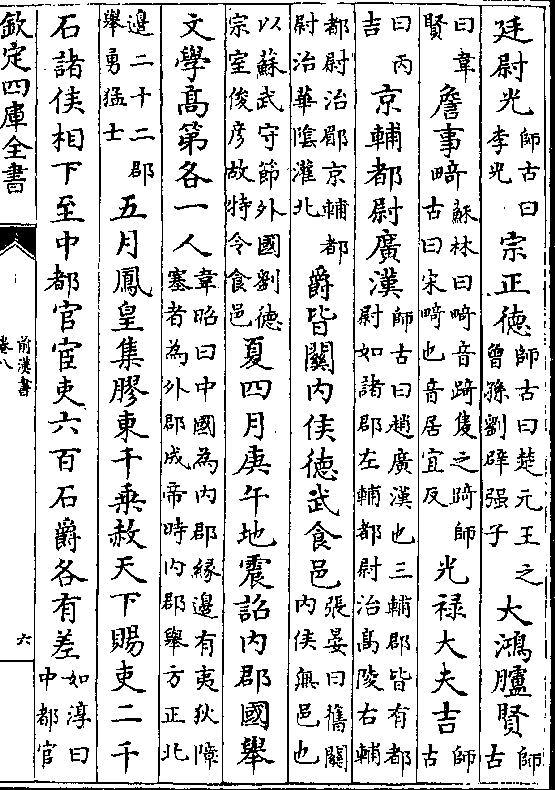 廷尉光師古曰李光宗正德師古曰楚元王之曾孫劉辟强子大鴻臚賢師古
曰韋賢詹事畸蘇林曰畸音踦隻之踦師古曰宋畸也音居宜反光禄大夫吉師古
曰丙吉京輔都尉廣漢師古曰趙廣漢也三輔郡皆有都尉如諸郡左輔都尉治高陵右輔
都尉治郿京輔都尉治華隂灌北爵皆關内侯德武食邑張晏曰舊關内侯無邑也
以蘇武守節外國劉德宗室俊彦故特令食邑夏四月庚午地震詔内郡國舉
文學高第各一人韋昭曰中國為内郡緣邊有夷狄障塞者為外郡成帝時内郡舉方正北
邊二十二郡舉勇猛士五月鳳皇集膠東千乗赦天下賜吏二千
石諸侯相下至中都官宦吏六百石爵各有差如淳曰中都官
欽定四庫全書
前漢書
卷八
六